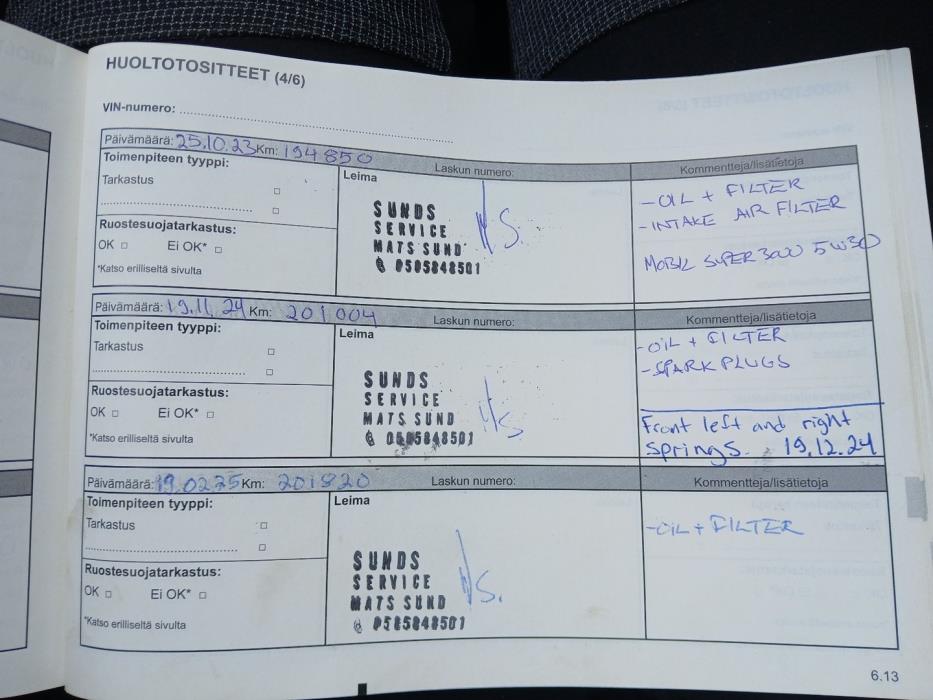 HUOLTOTOSITTEET (4/6)
VIN-numero:
Päivämäärä: 25.10.23 Km: 194850
Laskun numero:
Kommentteja/lisätietoja
Toimenpiteen tyyppi:
Tarkastus
Ruostesuojatarkastus:
OK □ Ei OK* □
*Katso erilliseltä sivulta
Leima
SUNDS
SERVICE
MATS SUND
0505848501
- OIL + FILTER
- INTAKE AIR FILTER
MOBIL SUPER 3000 5W30
Päivämäärä: 19.11.24 Km: 201004
Laskun numero:
Kommentteja/lisätietoja
Toimenpiteen tyyppi:
Tarkastus
Ruostesuojatarkastus:
OK □ Ei OK* □
*Katso erilliseltä sivulta
Leima
SUNDS
SERVICE
MATS SUND
0505848501
- OIL + FILTER
- SPARK PLUGS
Front left and right
springs. 19.12.24
Päivämäärä: 19.02.25 Km: 201820
Laskun numero:
Kommentteja/lisätietoja
Toimenpiteen tyyppi:
Tarkastus
Ruostesuojatarkastus:
OK □ Ei OK* □
*Katso erilliseltä sivulta
Leima
SUNDS
SERVICE
MATS SUND
0505848501
- OIL + FILTER
6.13